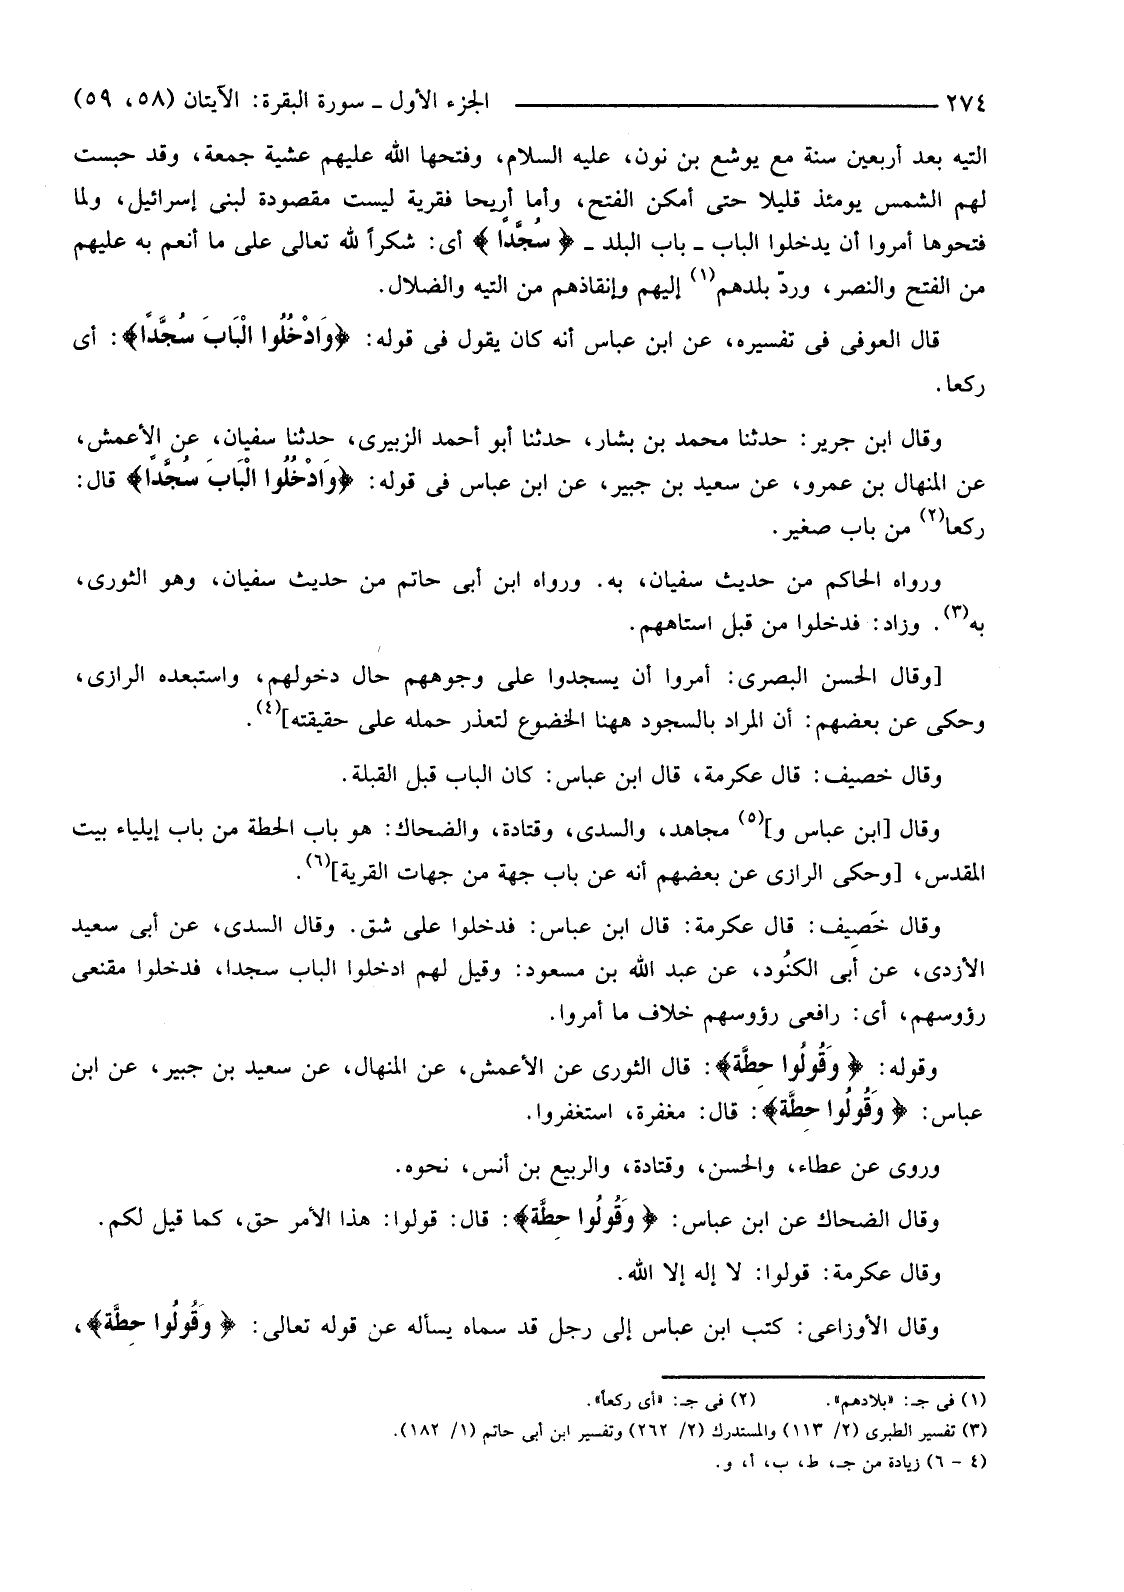 ٢٧٤ ـــــــــــــــــ الجزء الأول ـ سورة البقرة: الآيتان (٥٨، ٥٩)
التيه بعد أربعين سنة مع يوشع بن نون، عليه السلام، وفتحها الله عليهم عشية جمعة، وقد حبست
لهم الشمس يومئذ قليلا حتى أمكن الفتح، وأما أريحا فقرية ليست مقصودة لبنى إسرائيل، ولما
فتحوها أمروا أن يدخلوا الباب ـ باب البلد ـ ﴿ سُجَّدًا ﴾ أى: شكراً لله تعالى على ما أنعم به عليهم
من الفتح والنصر، وردّ بلدهم(١) إليهم وإنقاذهم من التيه والضلال.
قال العوفى فى تفسيره، عن ابن عباس أنه كان يقول فى قوله: ﴿وَادْخُلُوا الْبَابَ سُجَّدًا﴾: أى
ركعا.
وقال ابن جرير: حدثنا محمد بن بشار، حدثنا أبو أحمد الزبيرى، حدثنا سفيان، عن الأعمش،
عن المنهال بن عمرو، عن سعيد بن جبير، عن ابن عباس فى قوله: ﴿وَادْخُلُوا الْبَابَ سُجَّدًا﴾ قال:
ركعا(٢) من باب صغير.
ورواه الحاكم من حديث سفيان، به. ورواه ابن أبى حاتم من حديث سفيان، وهو الثورى،
به(٣). وزاد: فدخلوا من قبل استاههم.
[وقال الحسن البصرى: أمروا أن يسجدوا على وجوههم حال دخولهم، واستبعده الرازى،
وحكى عن بعضهم: أن المراد بالسجود ههنا الخضوع لتعذر حمله على حقيقته](٤).
وقال خصيف: قال عكرمة، قال ابن عباس: كان الباب قبل القبلة.
وقال [ابن عباس و](٥) مجاهد، والسدى، وقتادة، والضحاك: هو باب الحطة من باب إيلياء بيت
المقدس، [وحكى الرازى عن بعضهم أنه عن باب جهة من جهات القرية](٦).
وقال خَصِيف: قال عكرمة: قال ابن عباس: فدخلوا على شق. وقال السدى، عن أبى سعيد
الأزدى، عن أبى الكنُود، عن عبد الله بن مسعود: وقيل لهم ادخلوا الباب سجدا، فدخلوا مقنعى
رؤوسهم، أى: رافعى رؤوسهم خلاف ما أمروا.
وقوله: ﴿ وَقُولُوا حِطَّة﴾: قال الثورى عن الأعمش، عن المنهال، عن سعيد بن جبير، عن ابن
عباس: ﴿ وَقُولُوا حِطَّة﴾: قال: مغفرة، استغفروا.
وروى عن عطاء، والحسن، وقتادة، والربيع بن أنس، نحوه.
وقال الضحاك عن ابن عباس: ﴿ وَقُولُوا حِطَّة﴾: قال: قولوا: هذا الأمر حق، كما قيل لكم.
وقال عكرمة: قولوا: لا إله إلا الله.
وقال الأوزاعى: كتب ابن عباس إلى رجل قد سماه يسأله عن قوله تعالى: ﴿ وَقُولُوا حِطَّة﴾،
(١) فى جـ: «بلادهم». (٢) فى جـ: «أى ركعاً».
(٣) تفسير الطبرى (٢/ ١١٣) والمستدرك (٢/ ٢٦٢) وتفسير ابن أبى حاتم (١/ ١٨٢).
(٤ - ٦) زيادة من جـ، ط، ب، أ، و.